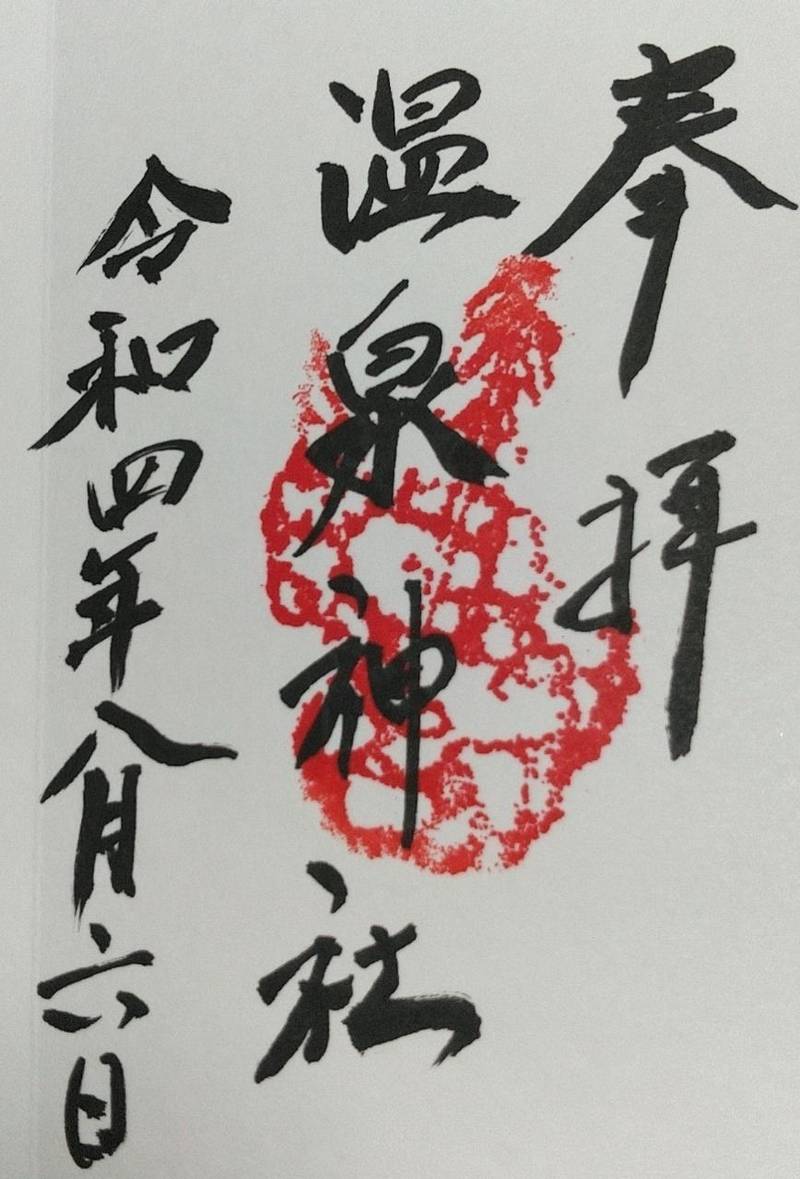 奉拝
温泉神社
令和四年八月六日